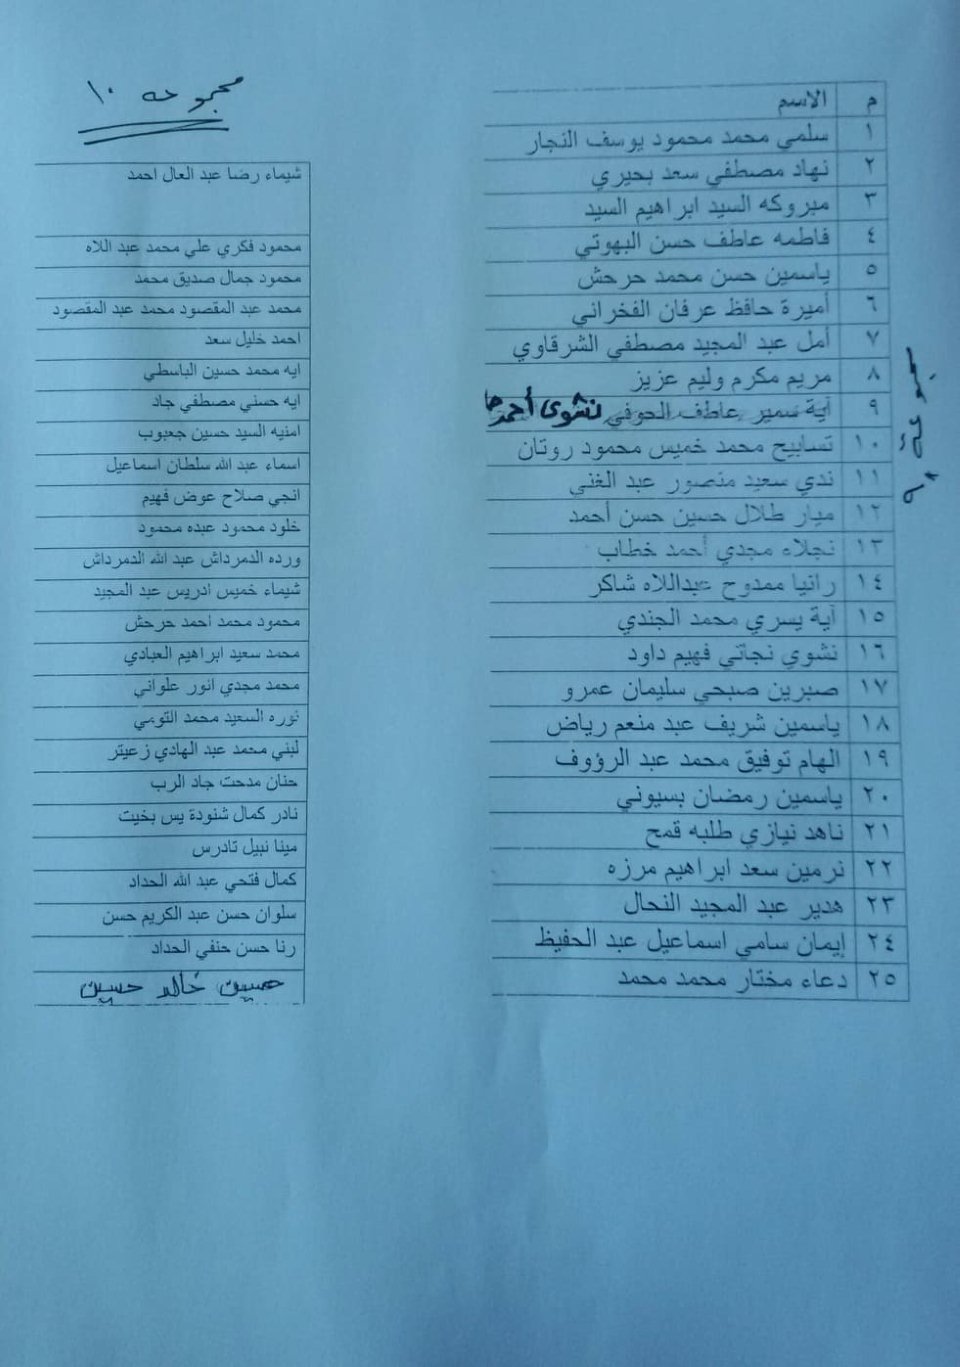 م الاسم
١ سلمي محمد محمود يوسف النجار
٢ نهاد مصطفي سعد بحيري
٣ مبروكه السيد ابراهيم السيد
٤ فاطمه عاطف حسن البهوتي
٥ ياسمين حسن محمد حرحش
٦ أميرة حافظ عرفان الفخراني
٧ أمل عبد المجيد مصطفي الشرقاوي
٨ مريم مكرم وليم عزيز
٩ آية سمير عاطف الحوفي نشوى أحمد
١٠ تسابيح محمد خميس محمود روتان
١١ ندي سعيد منصور عبد الغني
١٢ ميار طلال حسين حسن أحمد
١٣ نجلاء مجدي أحمد خطاب
١٤ رانيا ممدوح عبداللاه شاكر
١٥ آية يسري محمد الجندي
١٦ نشوي نجاتي فهيم داود
١٧ صبرين صبحي سليمان عمرو
١٨ ياسمين شريف عبد منعم رياض
١٩ الهام توفيق محمد عبد الرؤوف
٢٠ ياسمين رمضان بسيوني
٢١ ناهد نيازي طلبه قمح
٢٢ نرمين سعد ابراهيم مرزه
٢٣ هدير عبد المجيد النحال
٢٤ إيمان سامي اسماعيل عبد الحفيظ
٢٥ دعاء مختار محمد محمد
مجموعة ٩
مجموعه ١٠
شيماء رضا عبد العال احمد
محمود فكري علي محمد عبد اللاه
محمود جمال صديق محمد
محمد عبد المقصود محمد عبد المقصود
احمد خليل سعد
ايه محمد حسين الباسطي
ايه حسني مصطفي جاد
امنيه السيد حسين جعبوب
اسماء عبد الله سلطان اسماعيل
انجي صلاح عوض فهيم
خلود محمود عبده محمود
ورده الدمرداش عبد الله الدمرداش
شيماء خميس ادريس عبد المجيد
محمود محمد احمد حرحش
محمد سعيد ابراهيم العبادي
محمد مجدي انور علواني
نوره السعيد محمد التومي
لبني محمد عبد الهادي زعيتر
حنان مدحت جاد الرب
نادر كمال شنودة يس بخيت
مينا نبيل تادرس
كمال فتحي عبد الله الحداد
سلوان حسن عبد الكريم حسن
رنا حسن حنفي الحداد
حسين خالد حسين